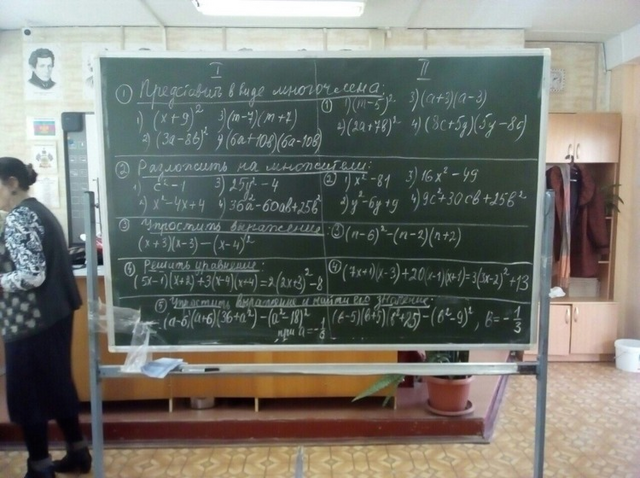 I
II
① Представить в виде многочлена:
1) (x+9)² 3) (m-7)(m+7)
2) (3a-8b)² 4) (6a+10b)(6a-10b)
① 1) (m-5)² 3) (a+3)(a-3)
2) (2a+7b)² 4) (8c+5y)(5y-8c)
② Разложить на множители:
1) c²-1 3) 25y²-4
2) x²-4x+4 4) 36a²-60ab+25b²
② 1) x²-81 3) 16x²-49
2) y²-6y+9 4) 9c²+30cb+25b²
③ Упростить выражение:
(x+3)(x-3)-(x-4)²
③ (n-6)²-(n-2)(n+2)
④ Решить уравнение:
(5x-1)(x+2)+3(x-4)(x+4)=2(2x+3)²-8
④ (7x+1)(x-3)+20(x-1)(x+1)=3(3x-2)²+13
⑤ Упростить выражение и найти его значение:
(a-6)(a+6)(36+a²)-(a²-18)²
при a=-
(b-5)(b+5)(b²+25)-(b²-9)², b=-1/3